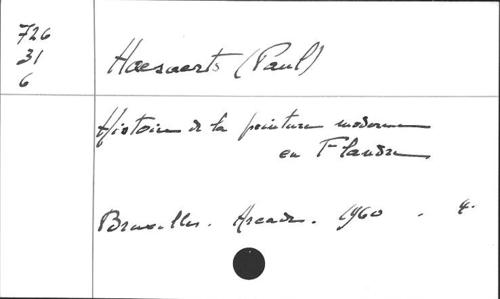 726
31
6
Haesaerts (Paul)
Histoire de la peinture moderne
en Flandre
Bruxelles. Arcade. 1960 . 4.